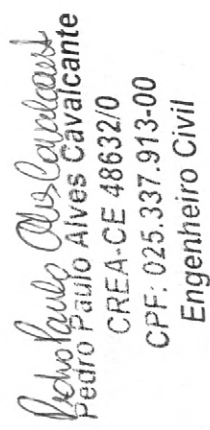 Pedro Paulo Alves Cavalcante
Pedro Paulo Alves Cavalcante
CREA-CE 48632/0
CPF: 025.337.913-00
Engenheiro Civil